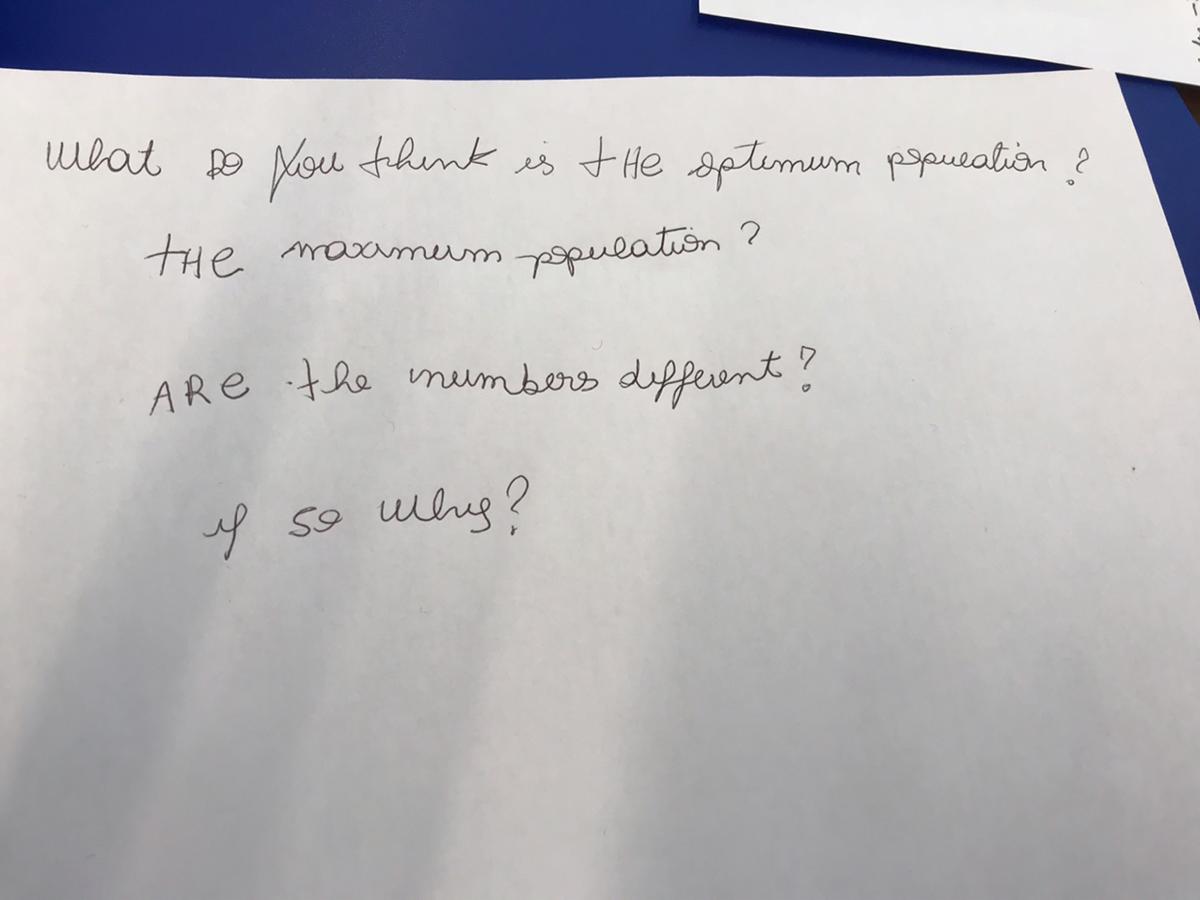 What DO You think is tHe optimum population?
tHe maximum population?
ARe the numbers different?
if so why?